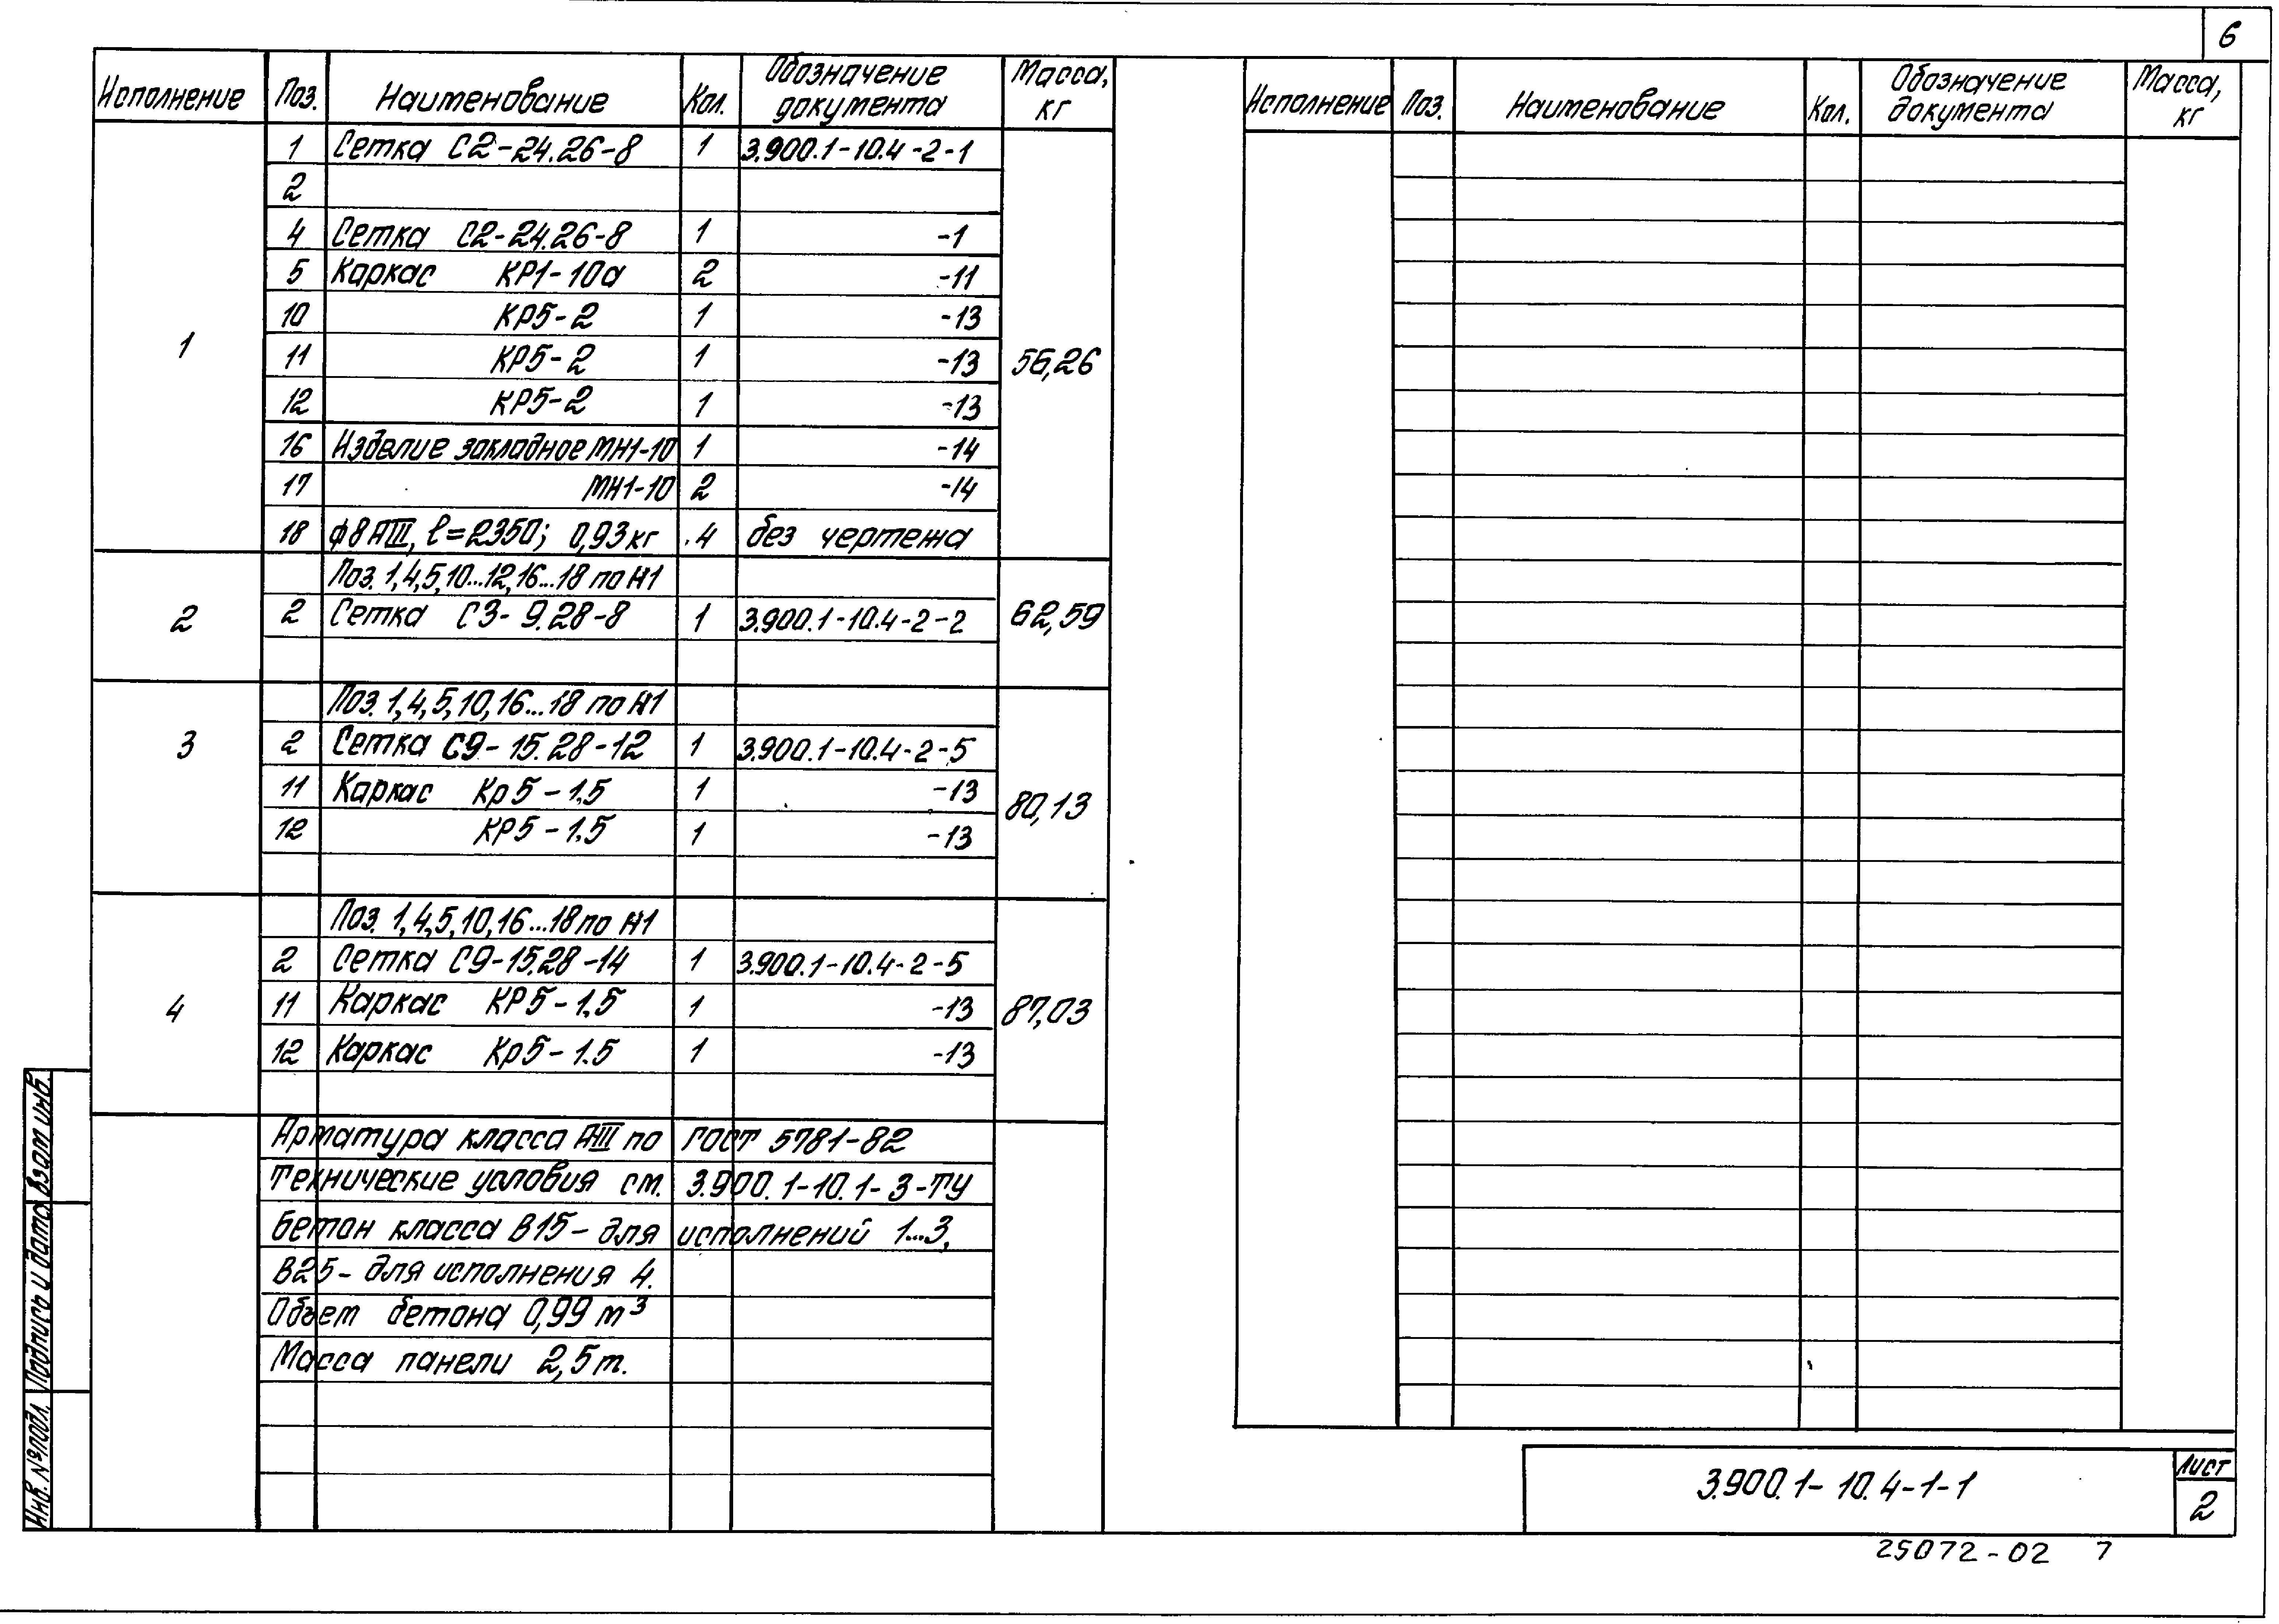 6
Исполнение Поз. Наименование Кол. Обозначение документа Масса, кг
1 1 Сетка С2-24.26-8 1 3.900.1-10.4-2-1 56,26
2
4 Сетка С2-24.26-8 1 -1
5 Каркас КР1-10а 2 -11
10 КР5-2 1 -13
11 КР5-2 1 -13
12 КР5-2 1 -13
16 Изделие закладное МН1-10 1 -14
17 МН1-10 2 -14
18 ф8АIII, ℓ=2350; 0,93кг 4 без чертежа
2 Поз. 1,4,5,10...12,16...18 по И1 62,59
2 Сетка С3-9.28-8 1 3.900.1-10.4-2-2
3 Поз. 1,4,5,10,16...18 по И1 80,13
2 Сетка С9-15.28-12 1 3.900.1-10.4-2-5
11 Каркас Кр5-1.5 1 -13
12 КР5-1.5 1 -13
4 Поз. 1,4,5,10,16...18 по И1 87,03
2 Сетка С9-15.28-14 1 3.900.1-10.4-2-5
11 Каркас КР5-1.5 1 -13
12 Каркас Кр5-1.5 1 -13
Арматура класса АIII по ГОСТ 5781-82
Технические условия см. 3.900.1-10.1-3-ТУ
Бетон класса В15-для исполнений 1...3,
В25-для исполнения 4.
Объем бетона 0,99 м³
Масса панели 2,5т.
Исполнение Поз. Наименование Кол. Обозначение документа Масса, кг
3.900.1-10.4-1-1
Лист
2
25072-02 7
Взам инв.
Подпись и дата
Инв. № подл.